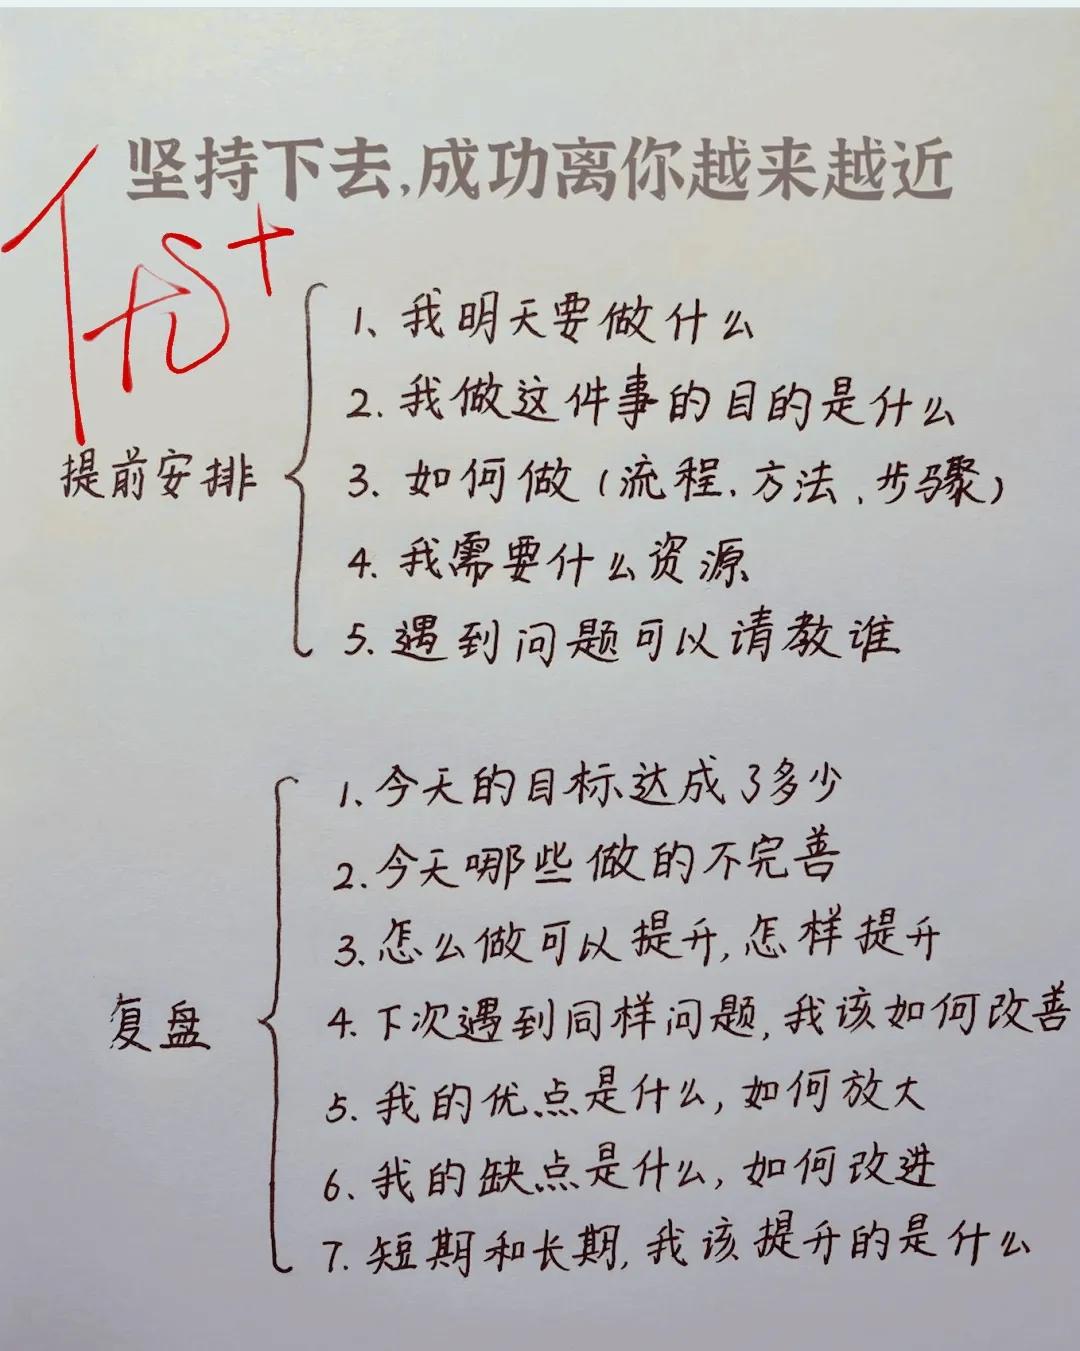 坚持下去,成功离你越来越近
提前安排
1、我明天要做什么
2.我做这件事的目的是什么
3.如何做(流程、方法、步骤)
4.我需要什么资源
5.遇到问题可以请教谁
复盘
1.今天的目标达成了多少
2.今天哪些做的不完善
3.怎么做可以提升,怎样提升
4.下次遇到同样问题,我该如何改善
5.我的优点是什么,如何放大
6.我的缺点是什么,如何改进
7.短期和长期,我该提升的是什么